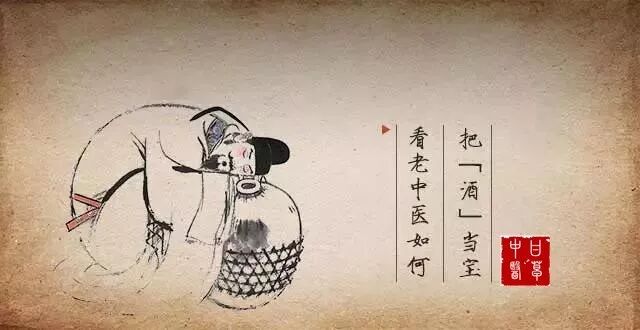 看老中医如何
把「酒」当宝
甘草
中醫